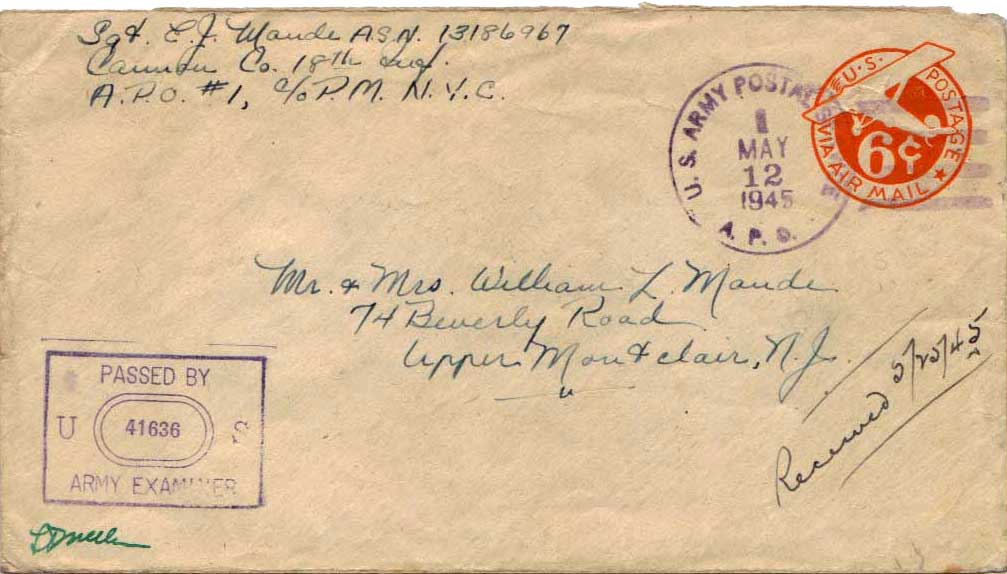 Sgt. E. J. Maude A.S.N. 13186967
Cannon Co. 18th Inf.
A.P.O. #1, c/o P.M. N.Y.C.
U.S. ARMY POSTAL
1
MAY
12
1945
A. P. O.
U.S. POSTAGE
6¢
VIA AIR MAIL
Mr. & Mrs. William L. Maude
74 Beverly Road
Upper Montclair, N.J.
Received 5/25/45
PASSED BY
U 41636 S
ARMY EXAMINER